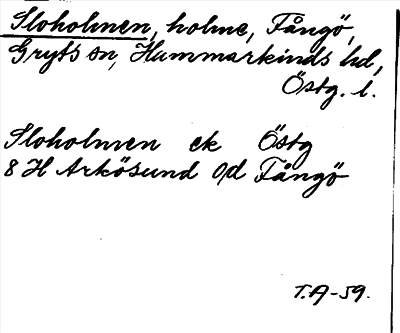 Sloholmen, holme, Fångö,
Gryts sn, Hammarkinds hd,
Östg. l.
Sloholmen ek Östg
8 H Arkösund o/d Fångö
T.A-59.